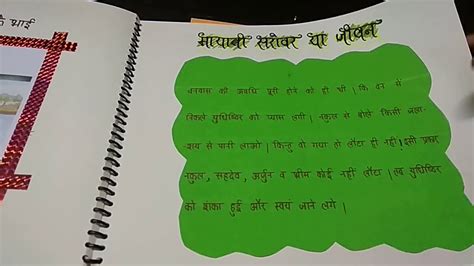 के भाई
मायावी सरोवर या जीवन
वनवास की अवधि पूरी होने को ही थी। कि वन में
युधिष्ठिर को प्यास लगी। नकुल से बोले किसी जला-
शय से पानी लाओ। किन्तु वो गया तो लौटा ही नहीं। इसी प्रकार
नकुल, सहदेव, अर्जुन व भीम कोई नहीं लौटा। तब युधिष्ठिर
को शंका हुई और स्वयं जाने लगे।